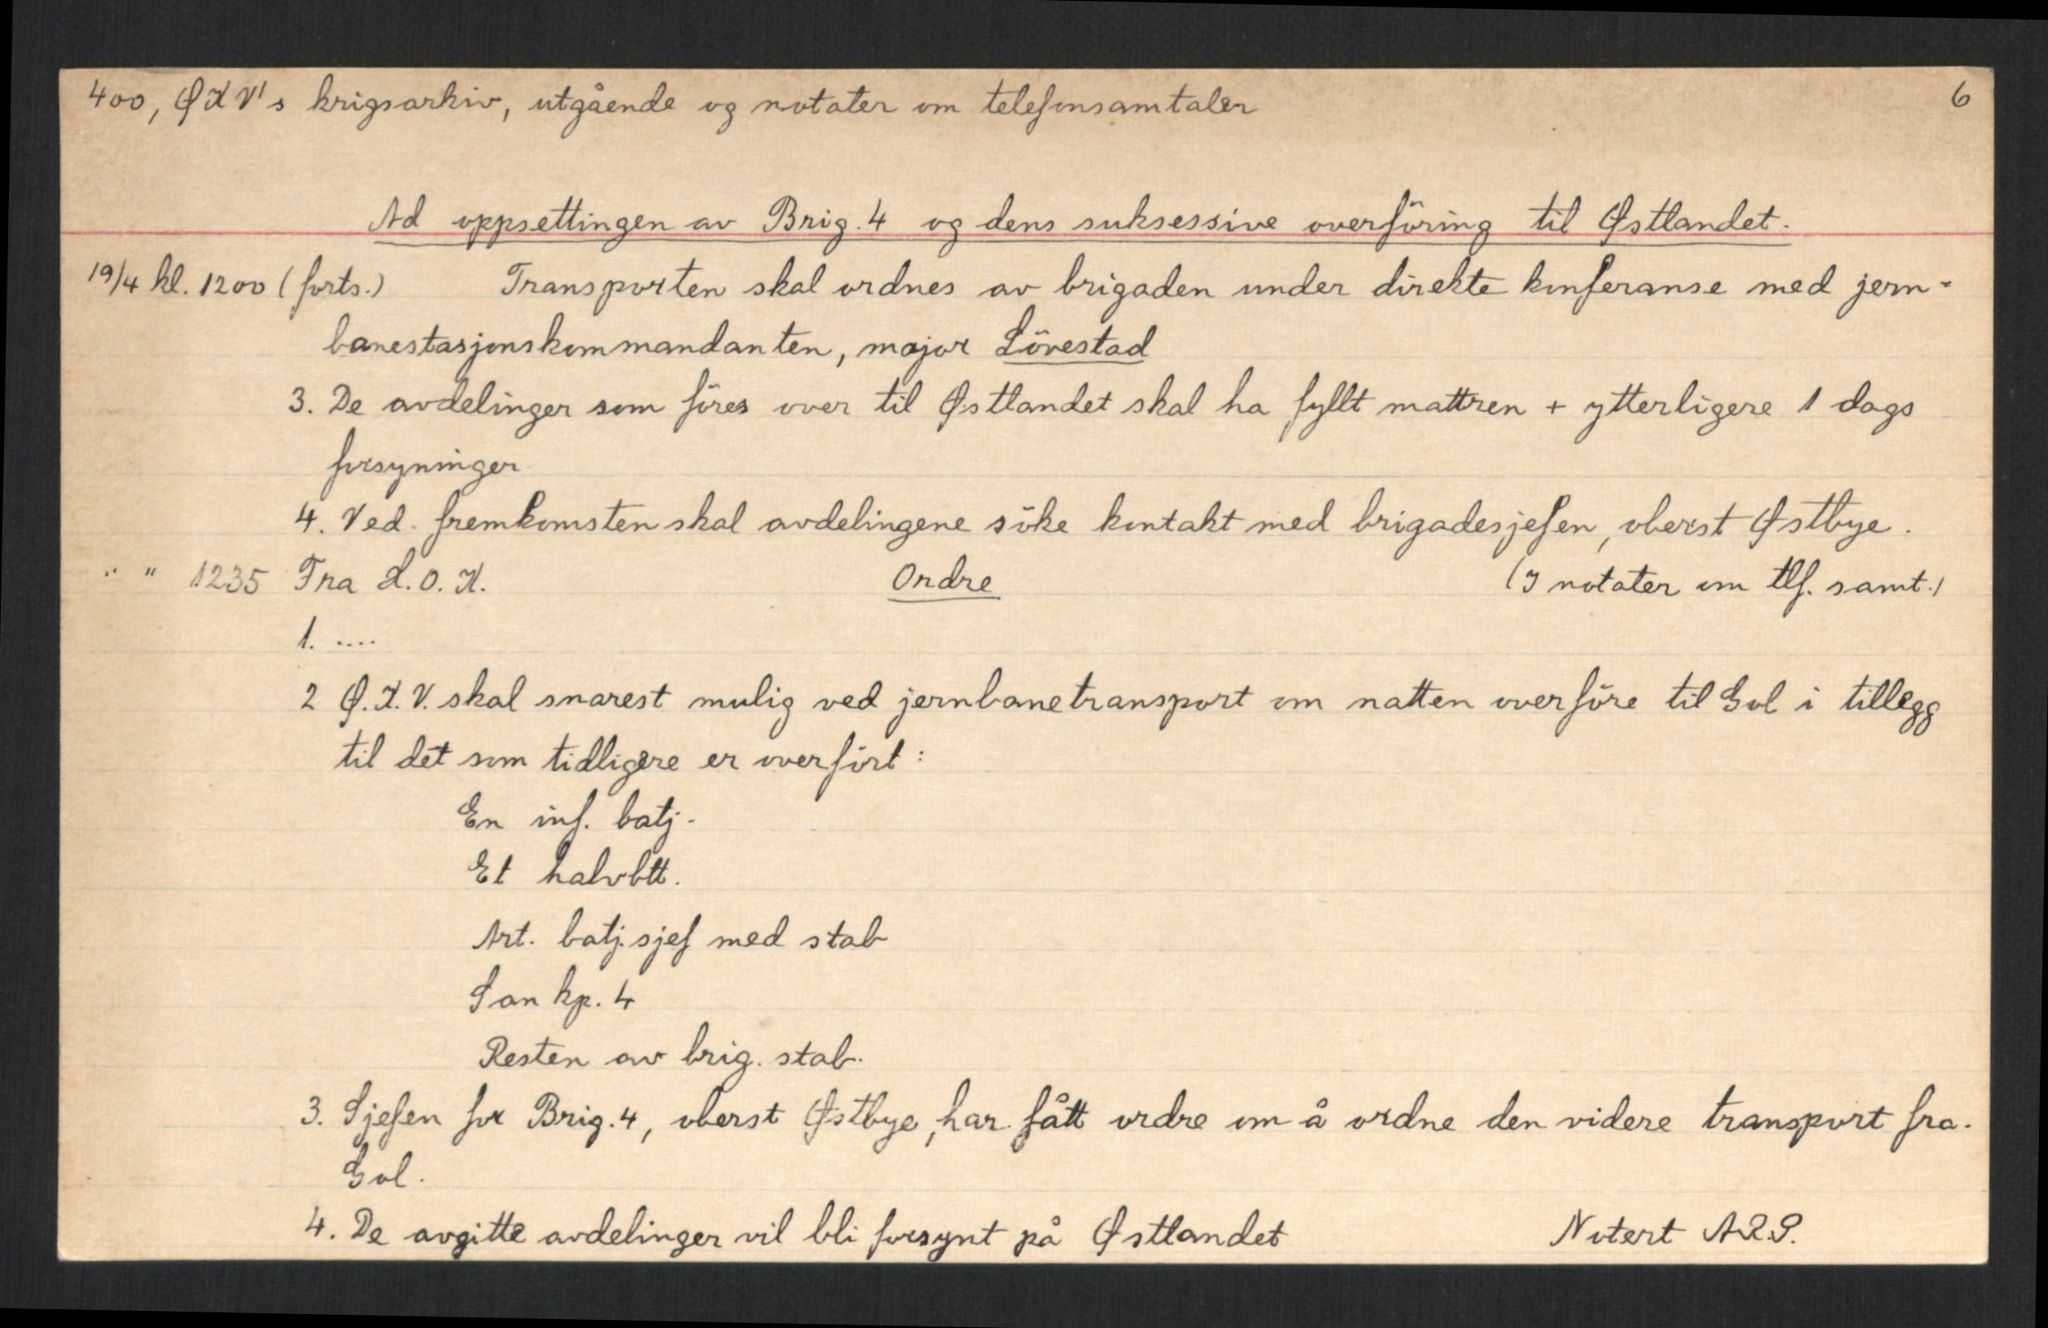 400, ØKV's krigsarkiv, utgående og notater om telefonsamtaler 6
Ad oppsettingen av Brig. 4 og dens suksessive overföring til Østlandet.
19/4 kl. 1200 (forts.) Transporten skal ordnes av brigaden under direkte konferanse med jern-
banestasjonskommandanten, major Lövestad
3. De avdelinger som föres over til Østlandet skal ha fyllt mattren + ytterligere 1 dags
forsyninger
4. Ved fremkomsten skal avdelingene söke kontakt med brigadesjefen, oberst Østbye.
" " 1235 Fra H.O.K. Ordre (I notater om tlf. samt.)
1. ....
2 Ø.K.V. skal snarest mulig ved jernbanetransport om natten overföre til Gol i tillegg
til det som tidligere er overfört:
En inf. batj.
Et halvbtt.
Art. batj. sjef med stab
San kp. 4
Resten av brig. stab.
3. Sjefen for Brig. 4, oberst Østbye, har fått ordre om å ordne den videre transport fra
Gol.
4. De avgitte avdelinger vil bli forsynt på Østlandet Notert